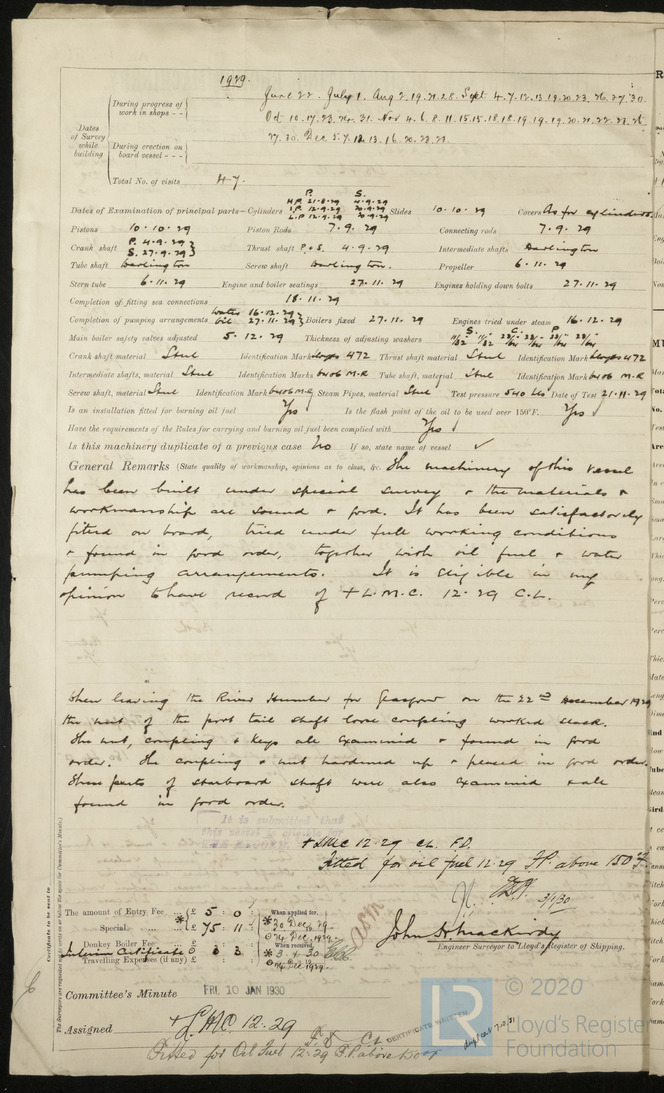 1929.
June 22. July 1. Aug 2. 19. 21. 28. Sept 4. 7. 12. 13. 19. 20. 23. 26. 27. 30.
During progress of work in shops - -
Oct 10. 17. 23. 24. 31. Nov 4. 6. 8. 11. 15. 15. 18. 18. 19. 19. 19. 20. 21. 22. 23. 26
Dates of Survey while building
27. 30. Dec 5. 7. 12. 13. 16. 20. 23. 27.
During erection on board vessel - - -
Total No. of visits 47.
P. S.
H.P. 21-8-29 4-9-29
Dates of Examination of principal parts—Cylinders I.P. 12-9-29 20-9-29 Slides 10.10.29 Covers As for cylinders
L.P 12-9-29 20-9-29
Pistons 10.10.29 Piston Rods 7.9.29 Connecting rods 7.9.29
Crank shaft P. 4-9-29 S. 27-9-29 Thrust shaft P+S. 4-9-29 Intermediate shafts Darlington
Tube shaft Darlington Screw shaft Darlington. Propeller 6.11.29
Stern tube 6.11.29 Engine and boiler seatings 27.11.29 Engines holding down bolts 27.11.29
Completion of fitting sea connections 18.11.29
Completion of pumping arrangements Water 16-12-29 Oil 27-11-29 Boilers fixed 27.11.29 Engines tried under steam 16.12.29
Main boiler safety valves adjusted 5.12.29 Thickness of adjusting washers
Crank shaft material Steel Identification Mark Lloyds 472 Thrust shaft material Steel Identification Mark Lloyds 472
Intermediate shafts, material Steel Identification Marks 6406 M.R Tube shaft, material Steel Identification Mark 6406 M.R
Screw shaft, material Steel Identification Mark 6406 M.R Steam Pipes, material Steel Test pressure 540 lbs Date of Test 21.11.29
Is an installation fitted for burning oil fuel Yes Is the flash point of the oil to be used over 150°F. Yes
Have the requirements of the Rules for carrying and burning oil fuel been complied with Yes
Is this machinery duplicate of a previous case No If so, state name of vessel ✓
General Remarks (State quality of workmanship, opinions as to class, &c. The machinery of this vessel
has been built under special survey & the materials &
workmanship are sound & good. It has been satisfactorily
fitted on board, tried under full working conditions
& found in good order, together with oil fuel & water
pumping arrangements. It is eligible in my
opinion to have record of + L.M.C. 12.29 C.L.
When leaving the River Humber for Glasgow on the 22nd December 1929
the nut of the port tail shaft loose coupling worked slack.
The nut, coupling & keys all examined & found in good
order. The coupling & nut hardened up & placed in good order.
These parts of starboard shaft were also examined & all
found in good order.
It is submitted that
this vessel is eligible for
THE RECORD.
+ LMC 12.29 CL. F.D.
Fitted for oil fuel 12.29 F.P. above 150°F.
3/1/30
The amount of Entry Fee ... £ 5 : 0 : When applied for,
Special ... £ 75 : 11 : 20 Dec. 29
Donkey Boiler Fee ... £ 24 Dec. 1929
Interim Certificate 3 3 When received,
Travelling Expenses (if any) £
John H. Mackirdy
Engineer Surveyor to Lloyd's Register of Shipping.
Committee's Minute FRI. 10 JAN 1930
Assigned + L.M.C. 12.29 F.D. C.L.
CERTIFICATE WRITTEN
Fitted for Oil Fuel 12.29 F.P. above 150°F
Certificate to be sent to
(The Surveyors are requested not to write on or below the space for Committee's Minute.)
© 2020
LR Lloyd's Register
Foundation